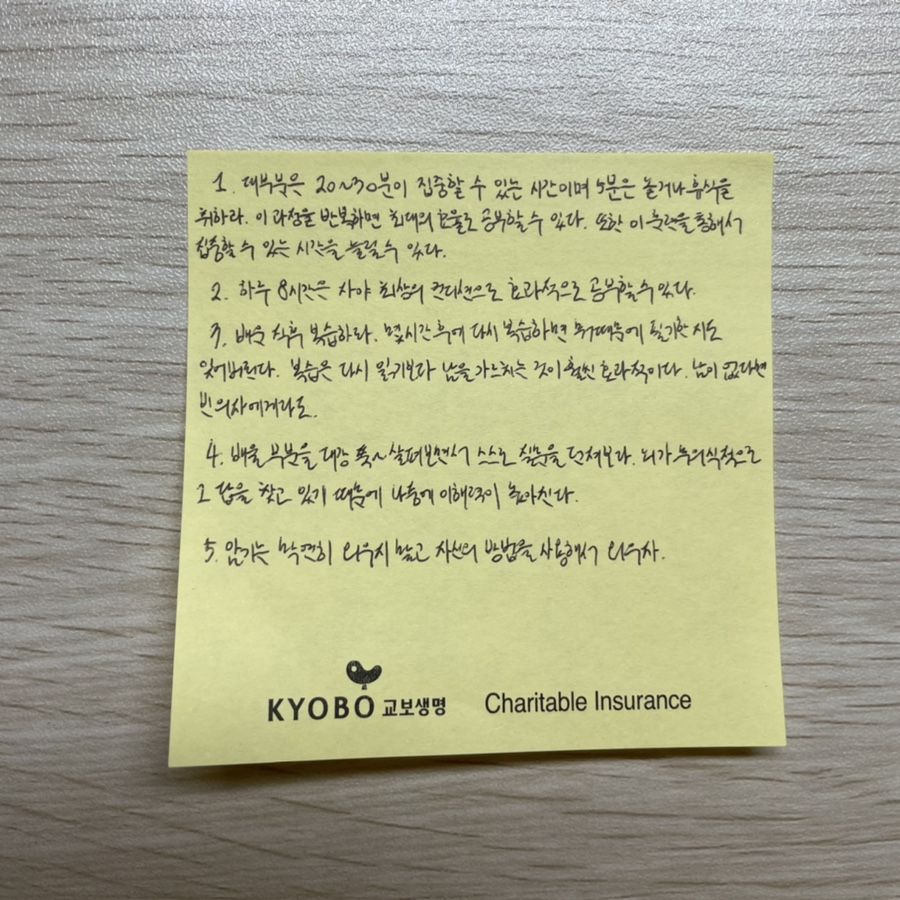 1. 대부분은 20~30분이 집중할 수 있는 시간이며 5분은 놀거나 휴식을
취하라. 이 과정을 반복하면 최대의 효율로 공부할 수 있다. 또한 이 노력을 통해서
집중할 수 있는 시간을 늘릴 수 있다.
2. 하루 8시간은 자야 최상의 컨디션으로 효과적으로 공부할 수 있다.
3. 배운 직후 복습하라. 몇시간 후에 다시 복습하면 늦기때문에 필기한 지도
잊어버린다. 복습은 다시 읽기보다 남을 가르치는 것이 훨씬 효과적이다. 남이 없다면
빈 의자에게라도.
4. 배울 부분을 대강 쭉~ 살펴보면서 스스로 질문을 던져보다. 뇌가 무의식적으로
그 답을 찾고 있기 때문에 나중에 이해력이 높아진다.
5. 암기는 막연히 외우지 말고 자신의 방법을 사용해서 외우자.
KYOBO 교보생명 Charitable Insurance